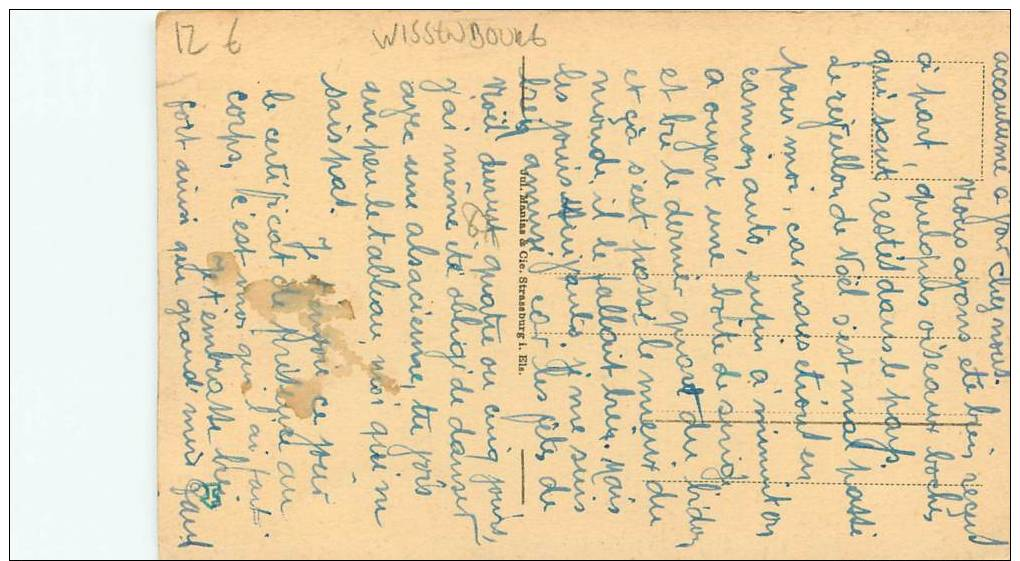 12 6
WISSENBOURG
accoutumé a voir chez nous.
Nous avons été bien reçus
à part, quelques oiseaux boches
qui sont restés dans le pays.
Le réveillon de Noël s'est mal passé
pour moi, car nous étions en
camion auto, enfin à minuit on
a ouvert une boite de singe
et bu le dernier quart du bidon
et çà s'est passé le mieux du
monde, il le fallait bien. Mais
les jours suivants je me suis
bien amusé car les fêtes de
Noël durent quatre ou cinq jours,
j'ai même été obligé de danser
avec une alsacienne, tu vois
un peu le tableau, moi qui ne
sais pas.
Je t'envoie ce jour
le certificat de présence au
corps, c'est moi qui l'ai fait.
Je t'embrasse bien
fort ainsi que grand'mère
Jul. Manias & Cie. Strassburg i. Els.